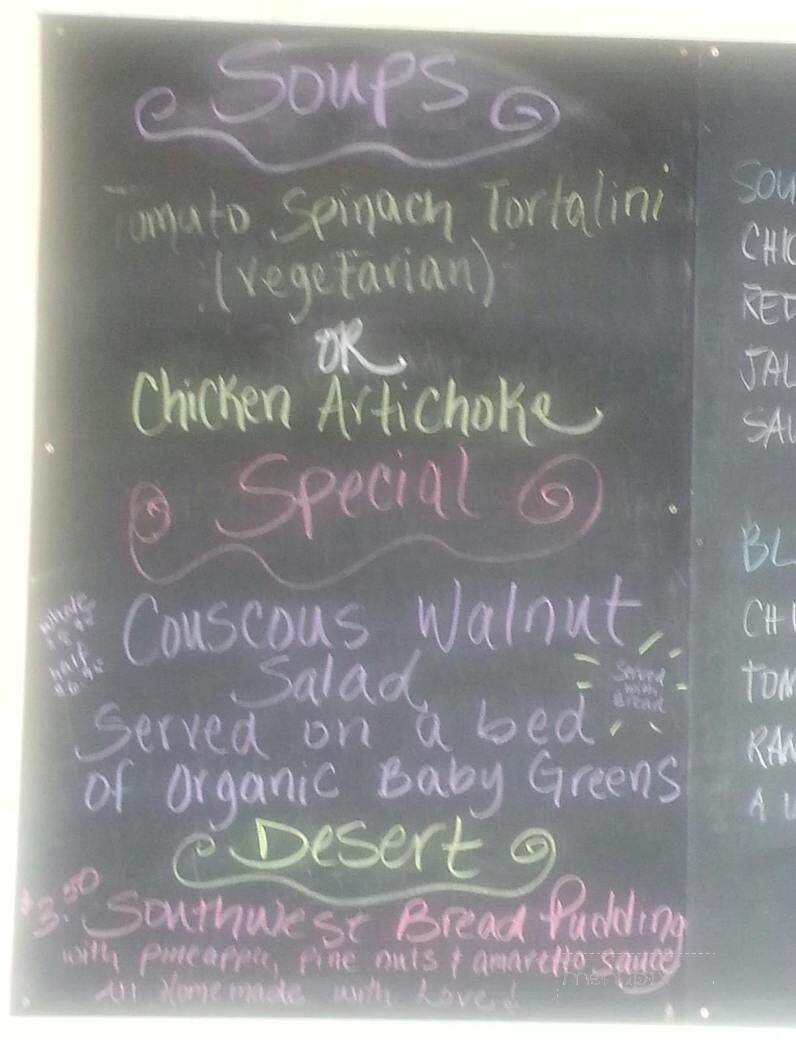 Soups
Tomato Spinach Tortalini
(vegetarian)
OR
Chicken Artichoke
Special
Couscous Walnut
Salad
whole
half
Served
with
Bread
Served on a bed
of organic Baby Greens
Desert
$3.50 Southwest Bread Pudding
with pineapple, pine nuts & amaretto sauce
All Homemade with Love!
SOU
CHIC
RED
JAL
SAU
BL
CHI
TOM
RAN
A